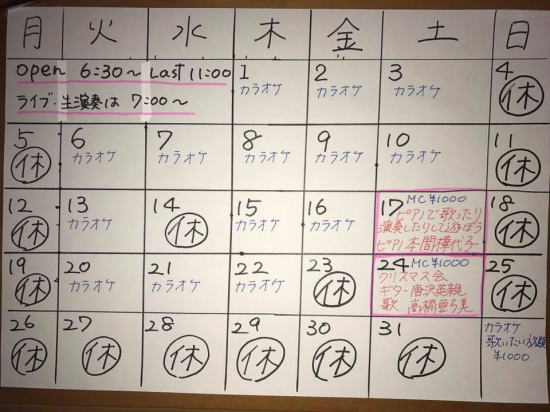 月 火 水 木 金 土 日
open 6:30～ Last 11:00
ライブ・生演奏は 7:00～
1 カラオケ
2 カラオケ
3 カラオケ
4 休
5 休
6 カラオケ
7 カラオケ
8 カラオケ
9 カラオケ
10 カラオケ
11 休
12 休
13 カラオケ
14 休
15 カラオケ
16 カラオケ
17 MC¥1000
ピアノで歌ったり
演奏したりして遊ぼう
ピアノ 本間樺代子
18 休
19 休
20 カラオケ
21 カラオケ
22 カラオケ
23 休
24 MC¥1000
クリスマス会
ギター 唐沢英親
歌 高橋亜弓美
25 休
26 休
27 休
28 休
29 休
30 休
31 休
カラオケ
歌いたい放題
¥1000